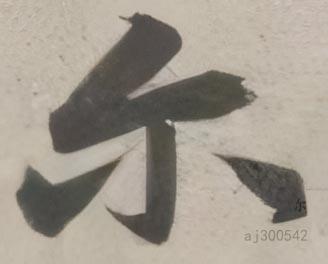 尔
aj300542